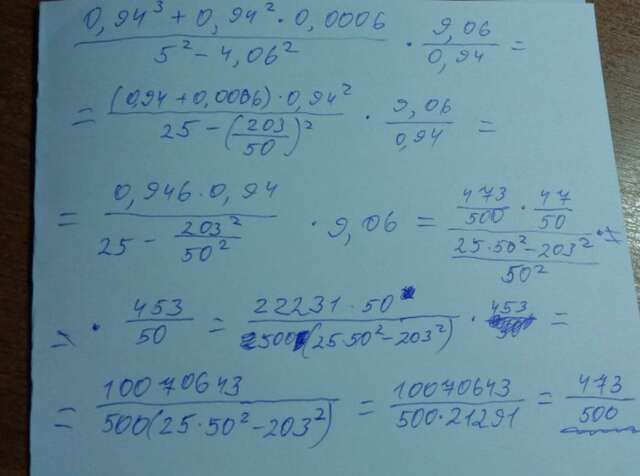 (0,94³ + 0,94² · 0,0006)/(5² - 4,06²) · 9,06/0,94 =
= ((0,94 + 0,0006) · 0,94²)/(25 - (203/50)²) · 9,06/0,94 =
= (0,946 · 0,94)/(25 - 203²/50²) · 9,06 = (473/500 · 47/50)/((25·50² - 203²)/50²) ·
· 453/50 = (22231 · 50)/(500(25·50² - 203²)) · 453 =
= 10070643/(500(25·50² - 203²)) = 10070643/(500·21291) = 473/500